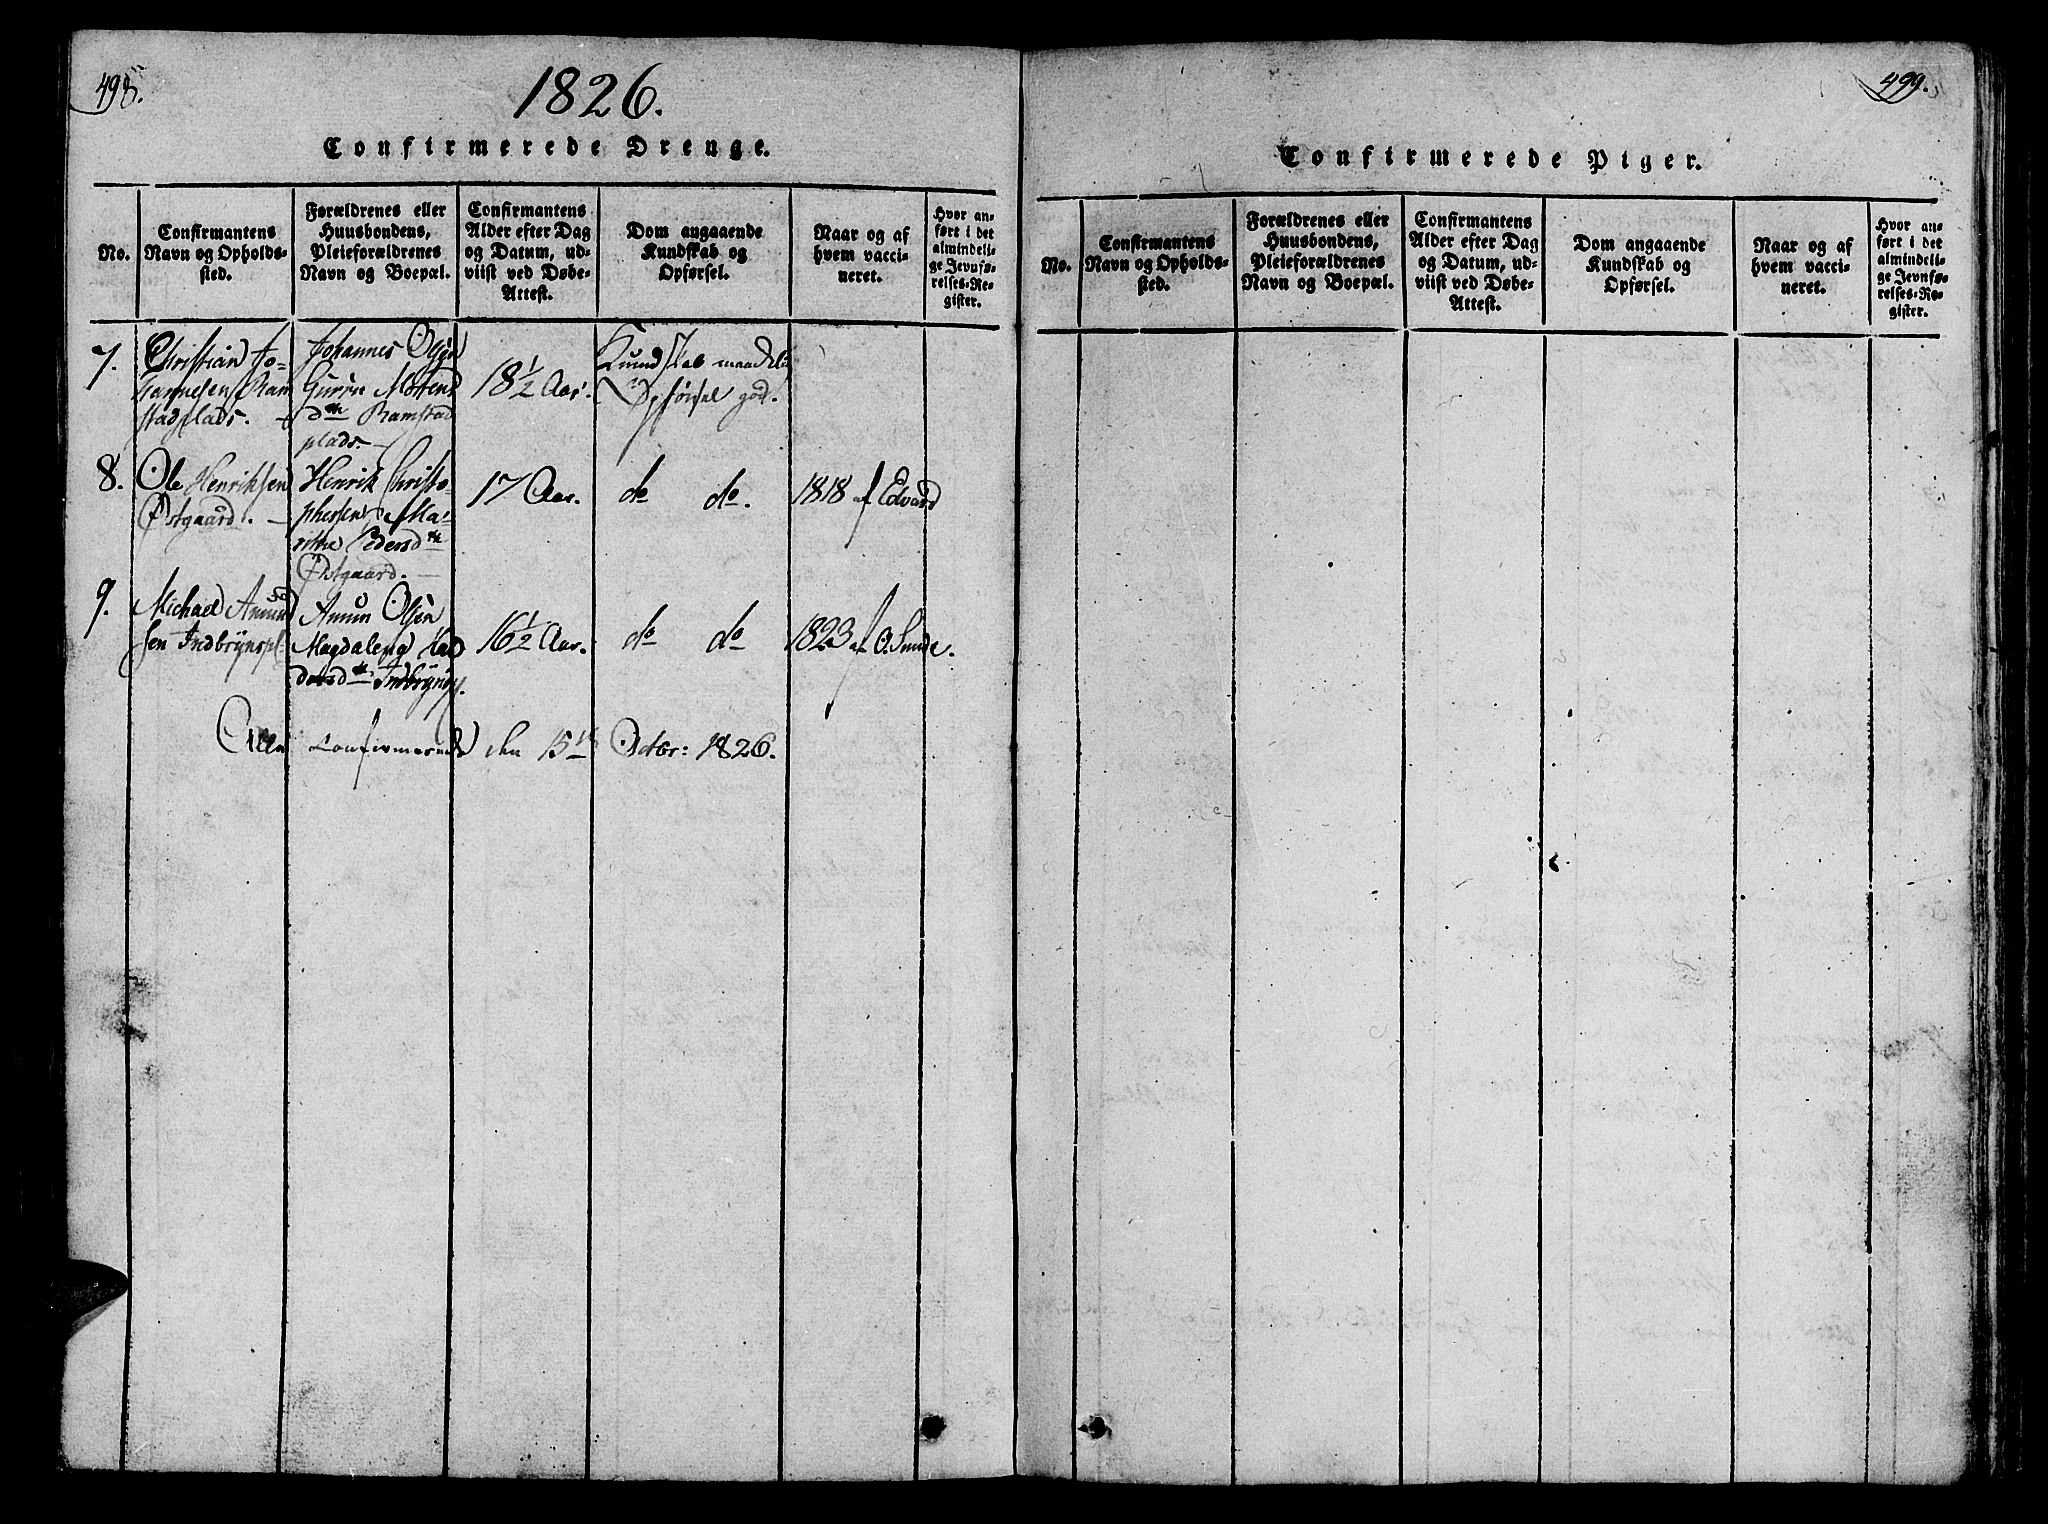 498.
1826.
Confirmerede Drenge.
No.
Confirmantens
Navn og Opholds-
sted.
Forældrenes eller
Huusbondens,
Pleieforældrenes
Navn og Boepæl.
Confirmantens
Alder efter Dag
og Datum, ud-
viist ved Døbe-
Attest.
Dom angaaende
Kundskab og
Opførsel.
Naar og af
hvem vacci-
neret.
Hvor an-
ført i det
almindeli-
ge Jevnfø-
relses-Re-
gister.
7.
Christian Jo-
hannesen Ram
stadplads. -
Johannes Olsen
Guren Mortens
dtr Ramstad
plads. -
18 1/2 Aar.
Kundskab maadelig
Opførsel god.
8.
Ole Henriksen
Østgaard. -
Henrik Christo-
phersen, Ma-
rithe Pedersdtr
Østgaard. -
17 Aar.
do do.
1818 af Edvard
9.
Michael Amund
sen Indbrynspl
Amun Olsen
Magdalena Hal
dorsd Indbrynspl.
16 1/2 Aar.
do do
1823 af O. Smide.
Alle confirmerede den 15de Octbr: 1826.
499.
Confirmerede Piger.
No.
Confirmantens
Navn og Opholds-
sted.
Forældrenes eller
Huusbondens,
Pleieforældrenes
Navn og Boepæl.
Confirmantens
Alder efter Dag
og Datum, ud-
viist ved Døbe-
Attest.
Dom angaaende
Kundskab og
Opførsel.
Naar og af
hvem vacci-
neret.
Hvor an-
ført i det
almindeli-
ge Jevnfø-
relses-Re-
gister.